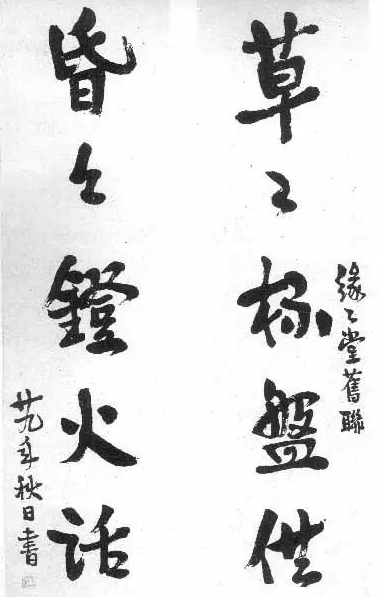 緣〻堂舊聯
草〻杯盤供
昏〻鐙火話
廿九年秋日書